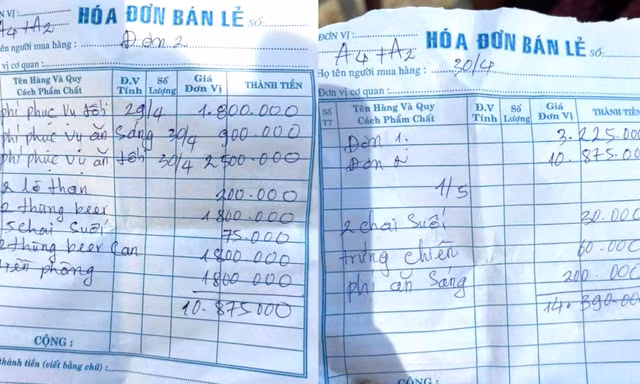 N VỊ:
HÓA ĐƠN BÁN LẺ SỐ
A4 + A2
ọ tên người mua hàng : Đơn 2
vị cơ quan :
Tên Hàng Và Quy Cách Phẩm Chất Đ.V Tính Số Lượng Giá Đơn Vị THÀNH TIỀN
phí phục vụ tối 29/4 1.800.000
phí phục vụ ăn sáng 30/4 900.000
phí phục vụ ăn tối 30/4 2500.000
2 lò than 200.000
2 thùng beer 1800.000
5 chai suối 75.000
2 thùng beer can 1800.000
tiền phòng 1800.000
10.875.000
CỘNG :
thành tiền (viết bằng chữ) :
ĐƠN VỊ :
HÓA ĐƠN BÁN LẺ SỐ:
A4 + A2
Họ tên người mua hàng : 30/4
Đơn vị cơ quan :
Số TT Tên Hàng Và Quy Cách Phẩm Chất Đ.V Tính Số Lượng Giá Đơn Vị THÀNH TIỀN
Đơn 1: 3.225.000
Đơn 2 10.875.00
1/5
2 chai suối 30.000
trứng chiên 60.000
phí ăn sáng 200.000
14.390.000
CỘNG :